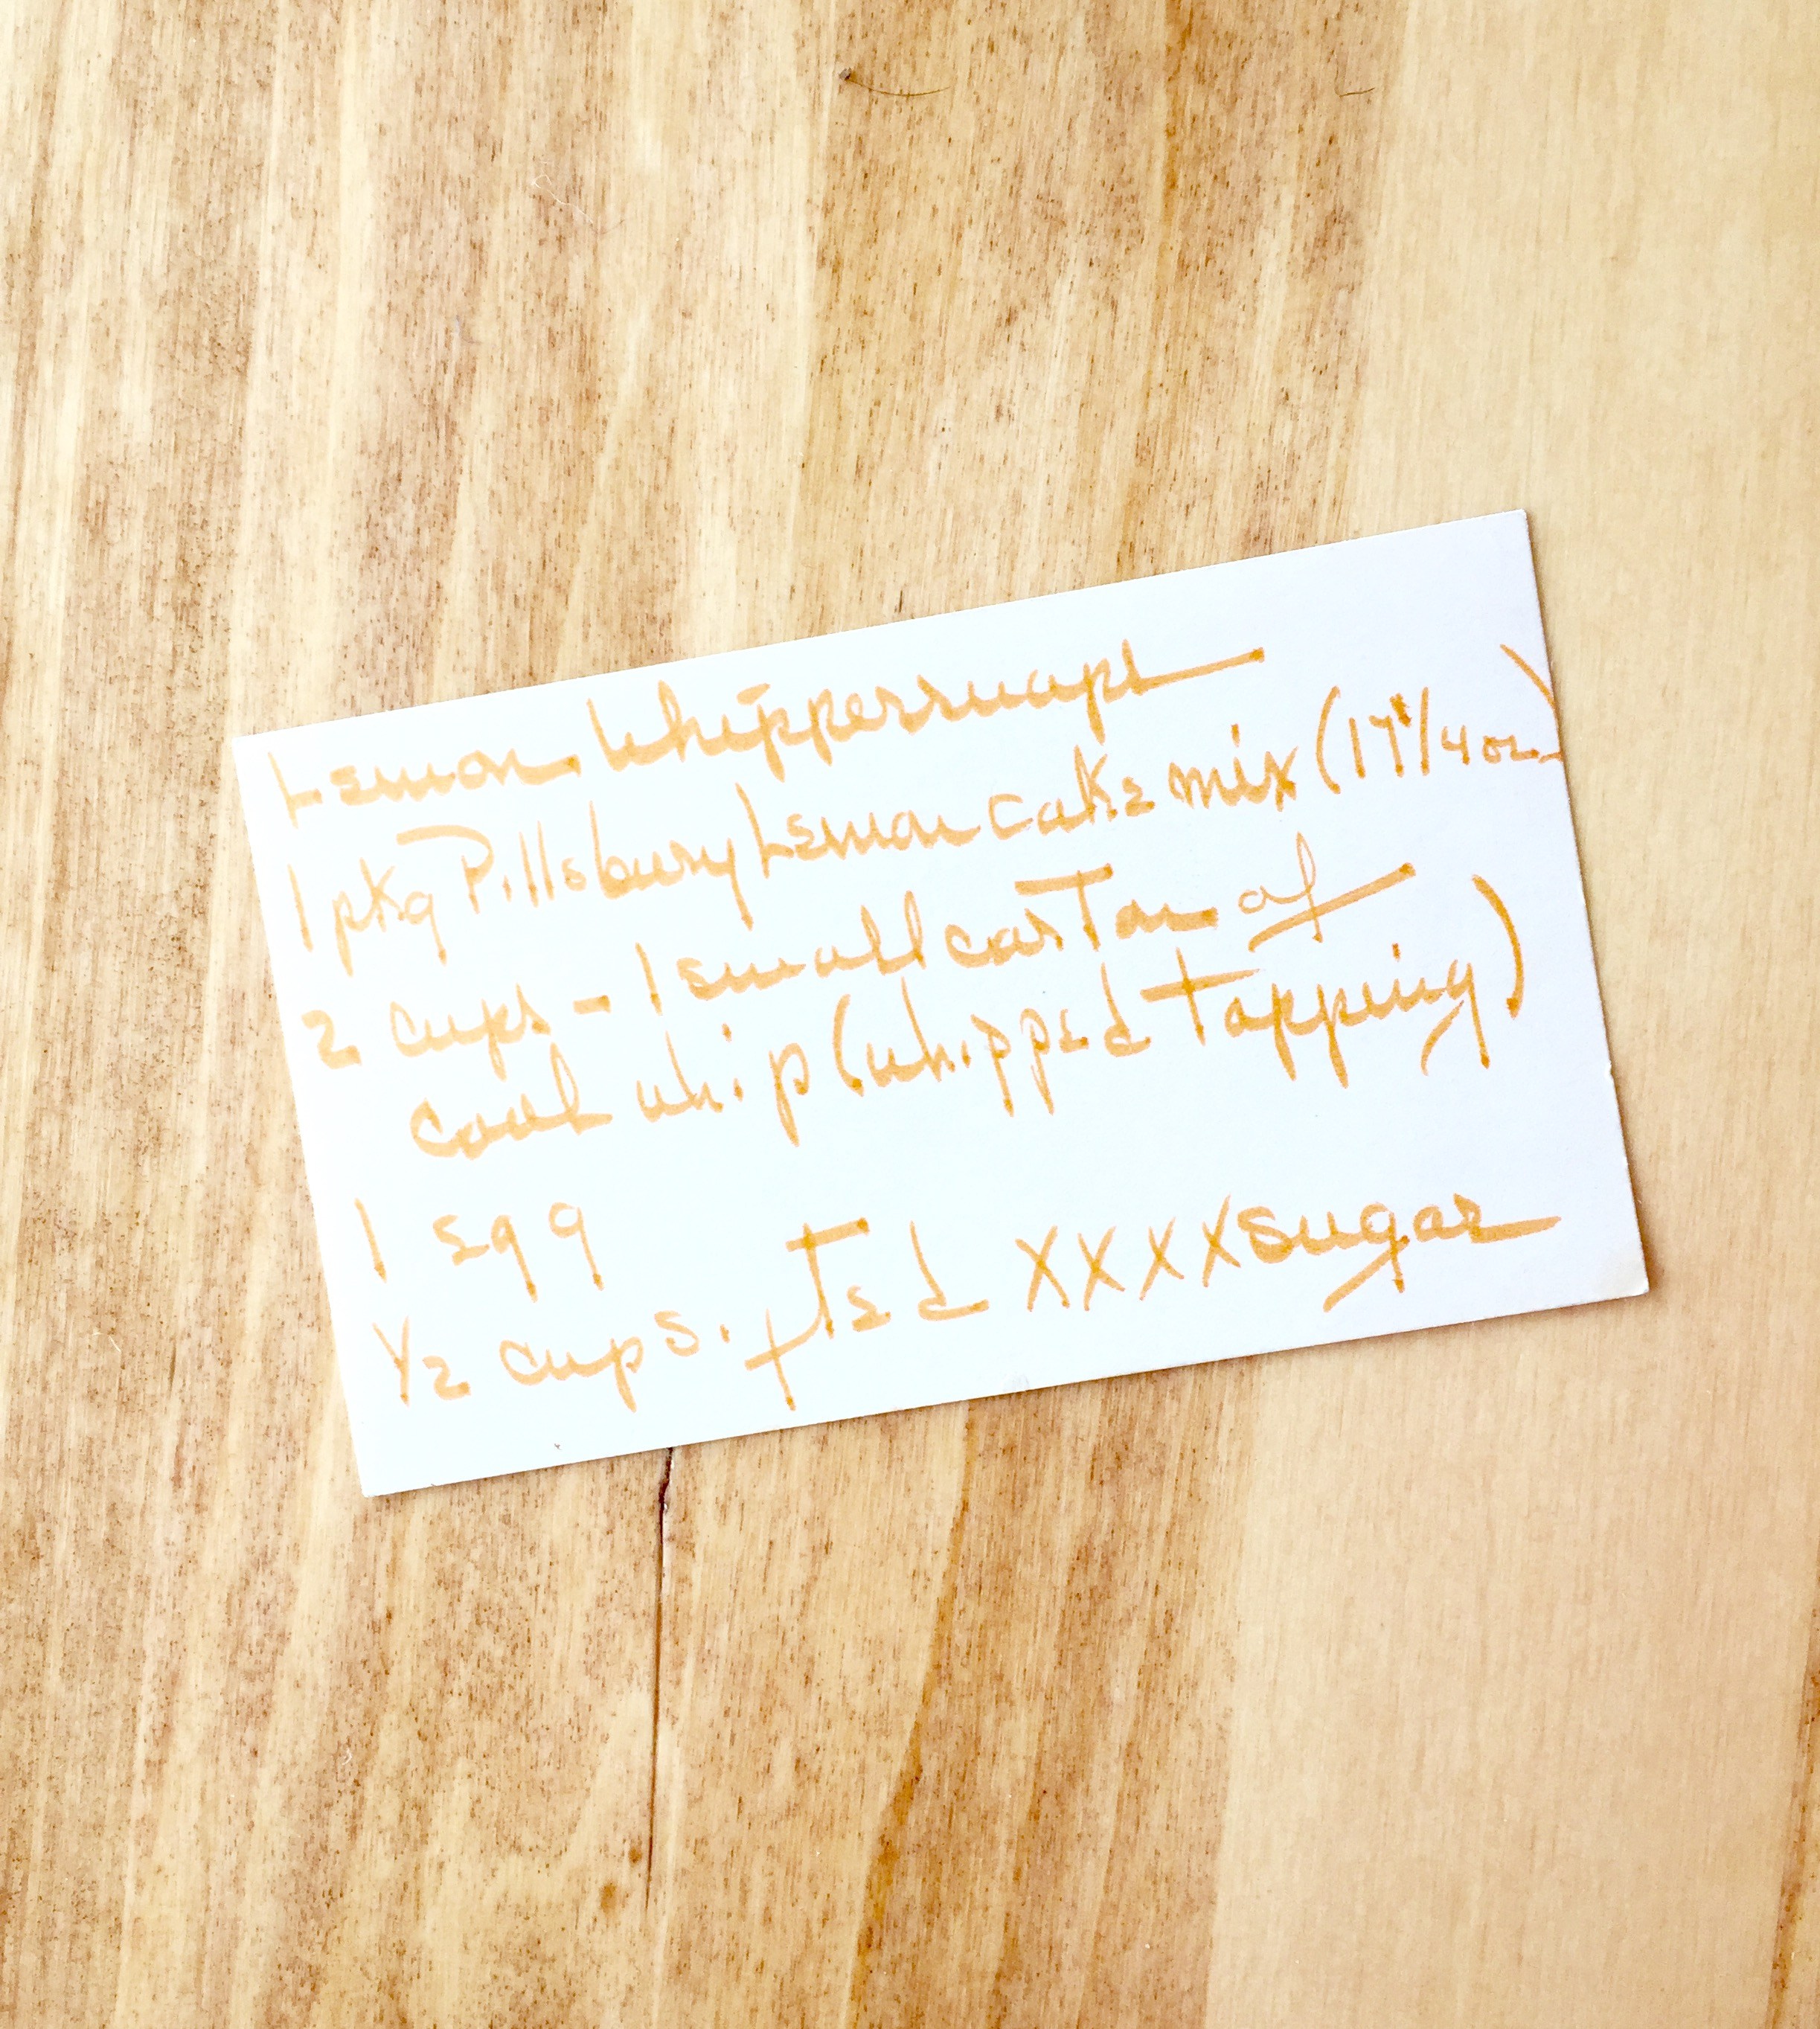 Lemon Whippersnaps
1 pkg Pillsbury Lemon cake mix (17 1/4 oz.)
2 cups - 1 small carton of
cool whip (whipped topping)
1 egg
1/2 cup sifted XXXX sugar